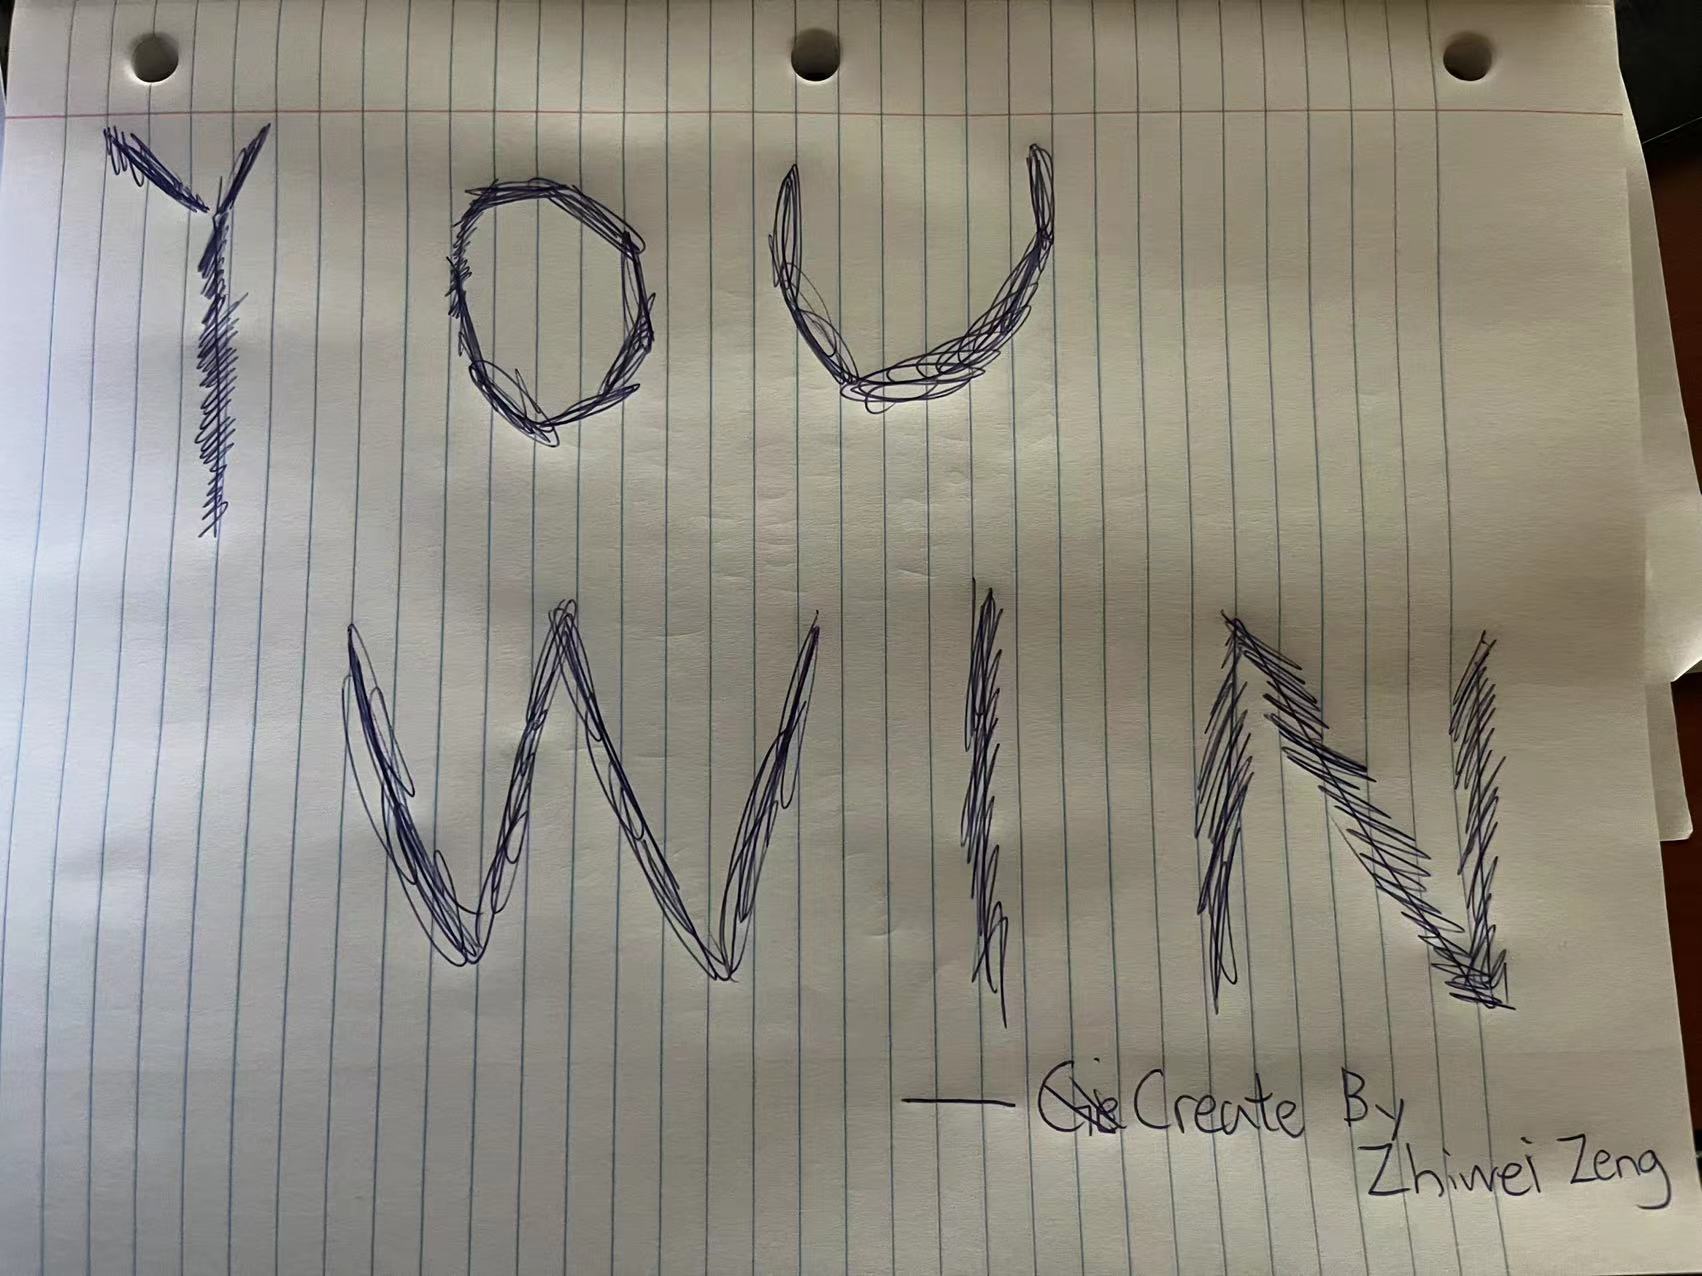 YOU
WIN
— Create By
Zhiwei Zeng